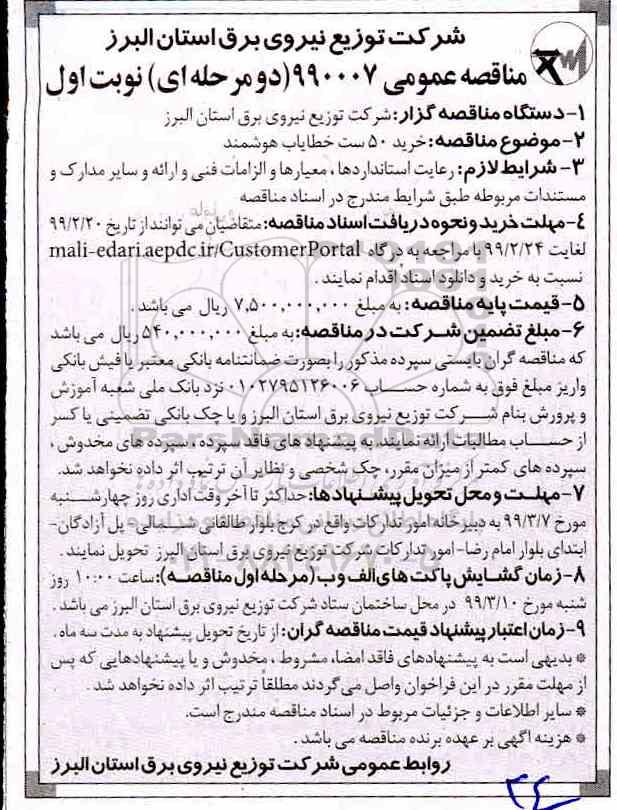 شرکت توزیع نیروی برق استان البرز
مناقصه عمومی ۹۹۰۰۰۷ (دو مرحله ای) نوبت اول
۱- دستگاه مناقصه گزار: شرکت توزیع نیروی برق استان البرز
۲- موضوع مناقصه: خرید ۵۰ ست خطایاب هوشمند
۳- شرایط لازم: رعایت استانداردها ، معیارها و الزامات فنی و ارائه و سایر مدارک و
مستندات مربوطه طبق شرایط مندرج در اسناد مناقصه
٤- مهلت خرید و نحوه دریافت اسناد مناقصه: متقاضیان می توانند از تاریخ ۹۹/۲/۲۰
لغایت ۹۹/۲/۲۴ با مراجعه به درگاه mali-edari.aepdc.ir/CustomerPortal
نسبت به خرید و دانلود اسناد اقدام نمایند .
۵- قیمت پایه مناقصه: به مبلغ ۷,۵۰۰,۰۰۰,۰۰۰ ریال می باشد .
۶- مبلغ تضمین شرکت در مناقصه: به مبلغ ۵۴۰,۰۰۰,۰۰۰ ریال می باشد
که مناقصه گران بایستی سپرده مذکور را بصورت ضمانتنامه بانکی معتبر یا فیش بانکی
واریز مبلغ فوق به شماره حساب ۰۱۰۲۷۹۵۱۲۶۰۰۶ نزد بانک ملی شعبه آموزش
و پرورش بنام شرکت توزیع نیروی برق استان البرز و یا چک بانکی تضمینی یا کسر
از حساب مطالبات ارائه نمایند. به پیشنهاد های فاقد سپرده ، سپرده های مخدوش ،
سپرده های کمتر از میزان مقرر، چک شخصی و نظایر آن ترتیب اثر داده نخواهد شد.
۷- مهلت و محل تحویل پیشنهادها: حداکثر تا آخر وقت اداری روز چهارشنبه
مورخ ۹۹/۳/۷ به دبیرخانه امور تدارکات واقع در کرج بلوار طالقانی شمالی- پل آزادگان-
ابتدای بلوار امام رضا- امور تدارکات شرکت توزیع نیروی برق استان البرز تحویل نمایند .
۸- زمان گشایش پاکت های الف و ب (مرحله اول مناقصه): ساعت ۱۰:۰۰ روز
شنبه مورخ ۹۹/۳/۱۰ در محل ساختمان ستاد شرکت توزیع نیروی برق استان البرز می باشد .
۹- زمان اعتبار پیشنهاد قیمت مناقصه گران: از تاریخ تحویل پیشنهاد به مدت سه ماه .
* بدیهی است به پیشنهادهای فاقد امضاء، مشروط ، مخدوش و یا پیشنهادهایی که پس
از مهلت مقرر در این فراخوان واصل می گردند مطلقا ترتیب اثر داده نخواهد شد .
* سایر اطلاعات و جزئیات مربوط در اسناد مناقصه مندرج است.
* هزینه اگهی بر عهده برنده مناقصه می باشد .
روابط عمومی شرکت توزیع نیروی برق استان البرز
۲۴